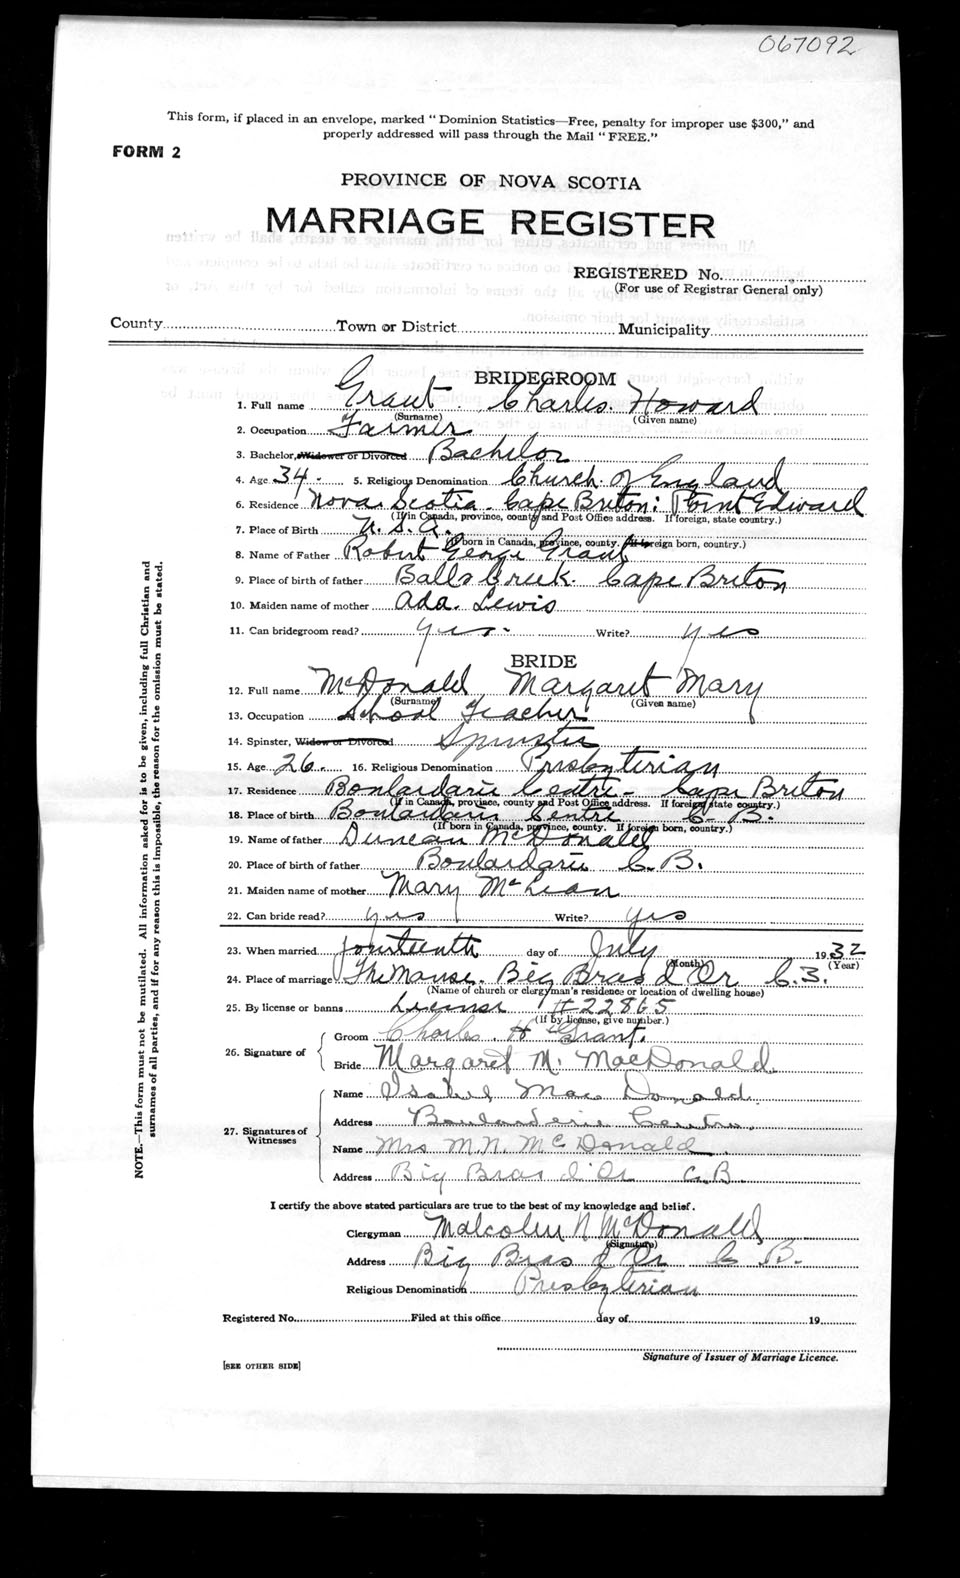 067092
This form, if placed in an envelope, marked "Dominion Statistics—Free, penalty for improper use $300," and
properly addressed will pass through the Mail "FREE."
FORM 2
PROVINCE OF NOVA SCOTIA
MARRIAGE REGISTER
REGISTERED No.
(For use of Registrar General only)
County Town or District Municipality
BRIDEGROOM
1. Full name Grant. Charles. Howard
(Surname) (Given name)
2. Occupation Farmer
3. Bachelor, Widower or Divorced Bachelor
4. Age 34. 5. Religious Denomination Church of England
6. Residence Nova Scotia. Cape Briton: Point Edward
(If in Canada, province, county and Post Office address. If foreign, state country.)
7. Place of Birth U. S. A.
(If born in Canada, province, county. If foreign born, country.)
8. Name of Father Robert George Grant
9. Place of birth of father Balls Creek. Cape Briton
10. Maiden name of mother Ada. Lewis
11. Can bridegroom read? yes. Write? yes
BRIDE
12. Full name McDonald Margaret Mary
(Surname) (Given name)
13. Occupation School Teacher
14. Spinster, Widow or Divorced Spinster
15. Age 26. 16. Religious Denomination Presbyterian
17. Residence Boulardarie Centre - Cape Briton
(If in Canada, province, county and Post Office address. If foreign state country.)
18. Place of birth Boulardarie Centre C. B.
(If born in Canada, province, county. If foreign born, country.)
19. Name of father Duncan McDonald
20. Place of birth of father Boulardarie C. B.
21. Maiden name of mother Mary McLean
22. Can bride read? yes Write? yes
23. When married fourteenth day of July 1932
(Month) (Year)
24. Place of marriage The Manse. Big Bras d'Or C.B.
(Name of church or clergyman's residence or location of dwelling house)
25. By license or banns License #22865
(If by license, give number.)
26. Signature of
Groom Charles. H Grant.
Bride Margaret M. MacDonald.
27. Signatures of Witnesses
Name Isabel MacDonald.
Address Boularderie Centre.
Name Mrs M.N. McDonald
Address Big Bras d'Or C.B.
I certify the above stated particulars are true to the best of my knowledge and belief.
Clergyman Malcolm N McDonald
(Signature)
Address Big Bras d'Or C B.
Religious Denomination Presbyterian
Registered No. Filed at this office day of 19
Signature of Issuer of Marriage Licence.
[SEE OTHER SIDE]
NOTE.—This form must not be mutilated. All information asked for is to be given, including full Christian and
surnames of all parties, and if for any reason this is impossible, the reason for the omission must be stated.